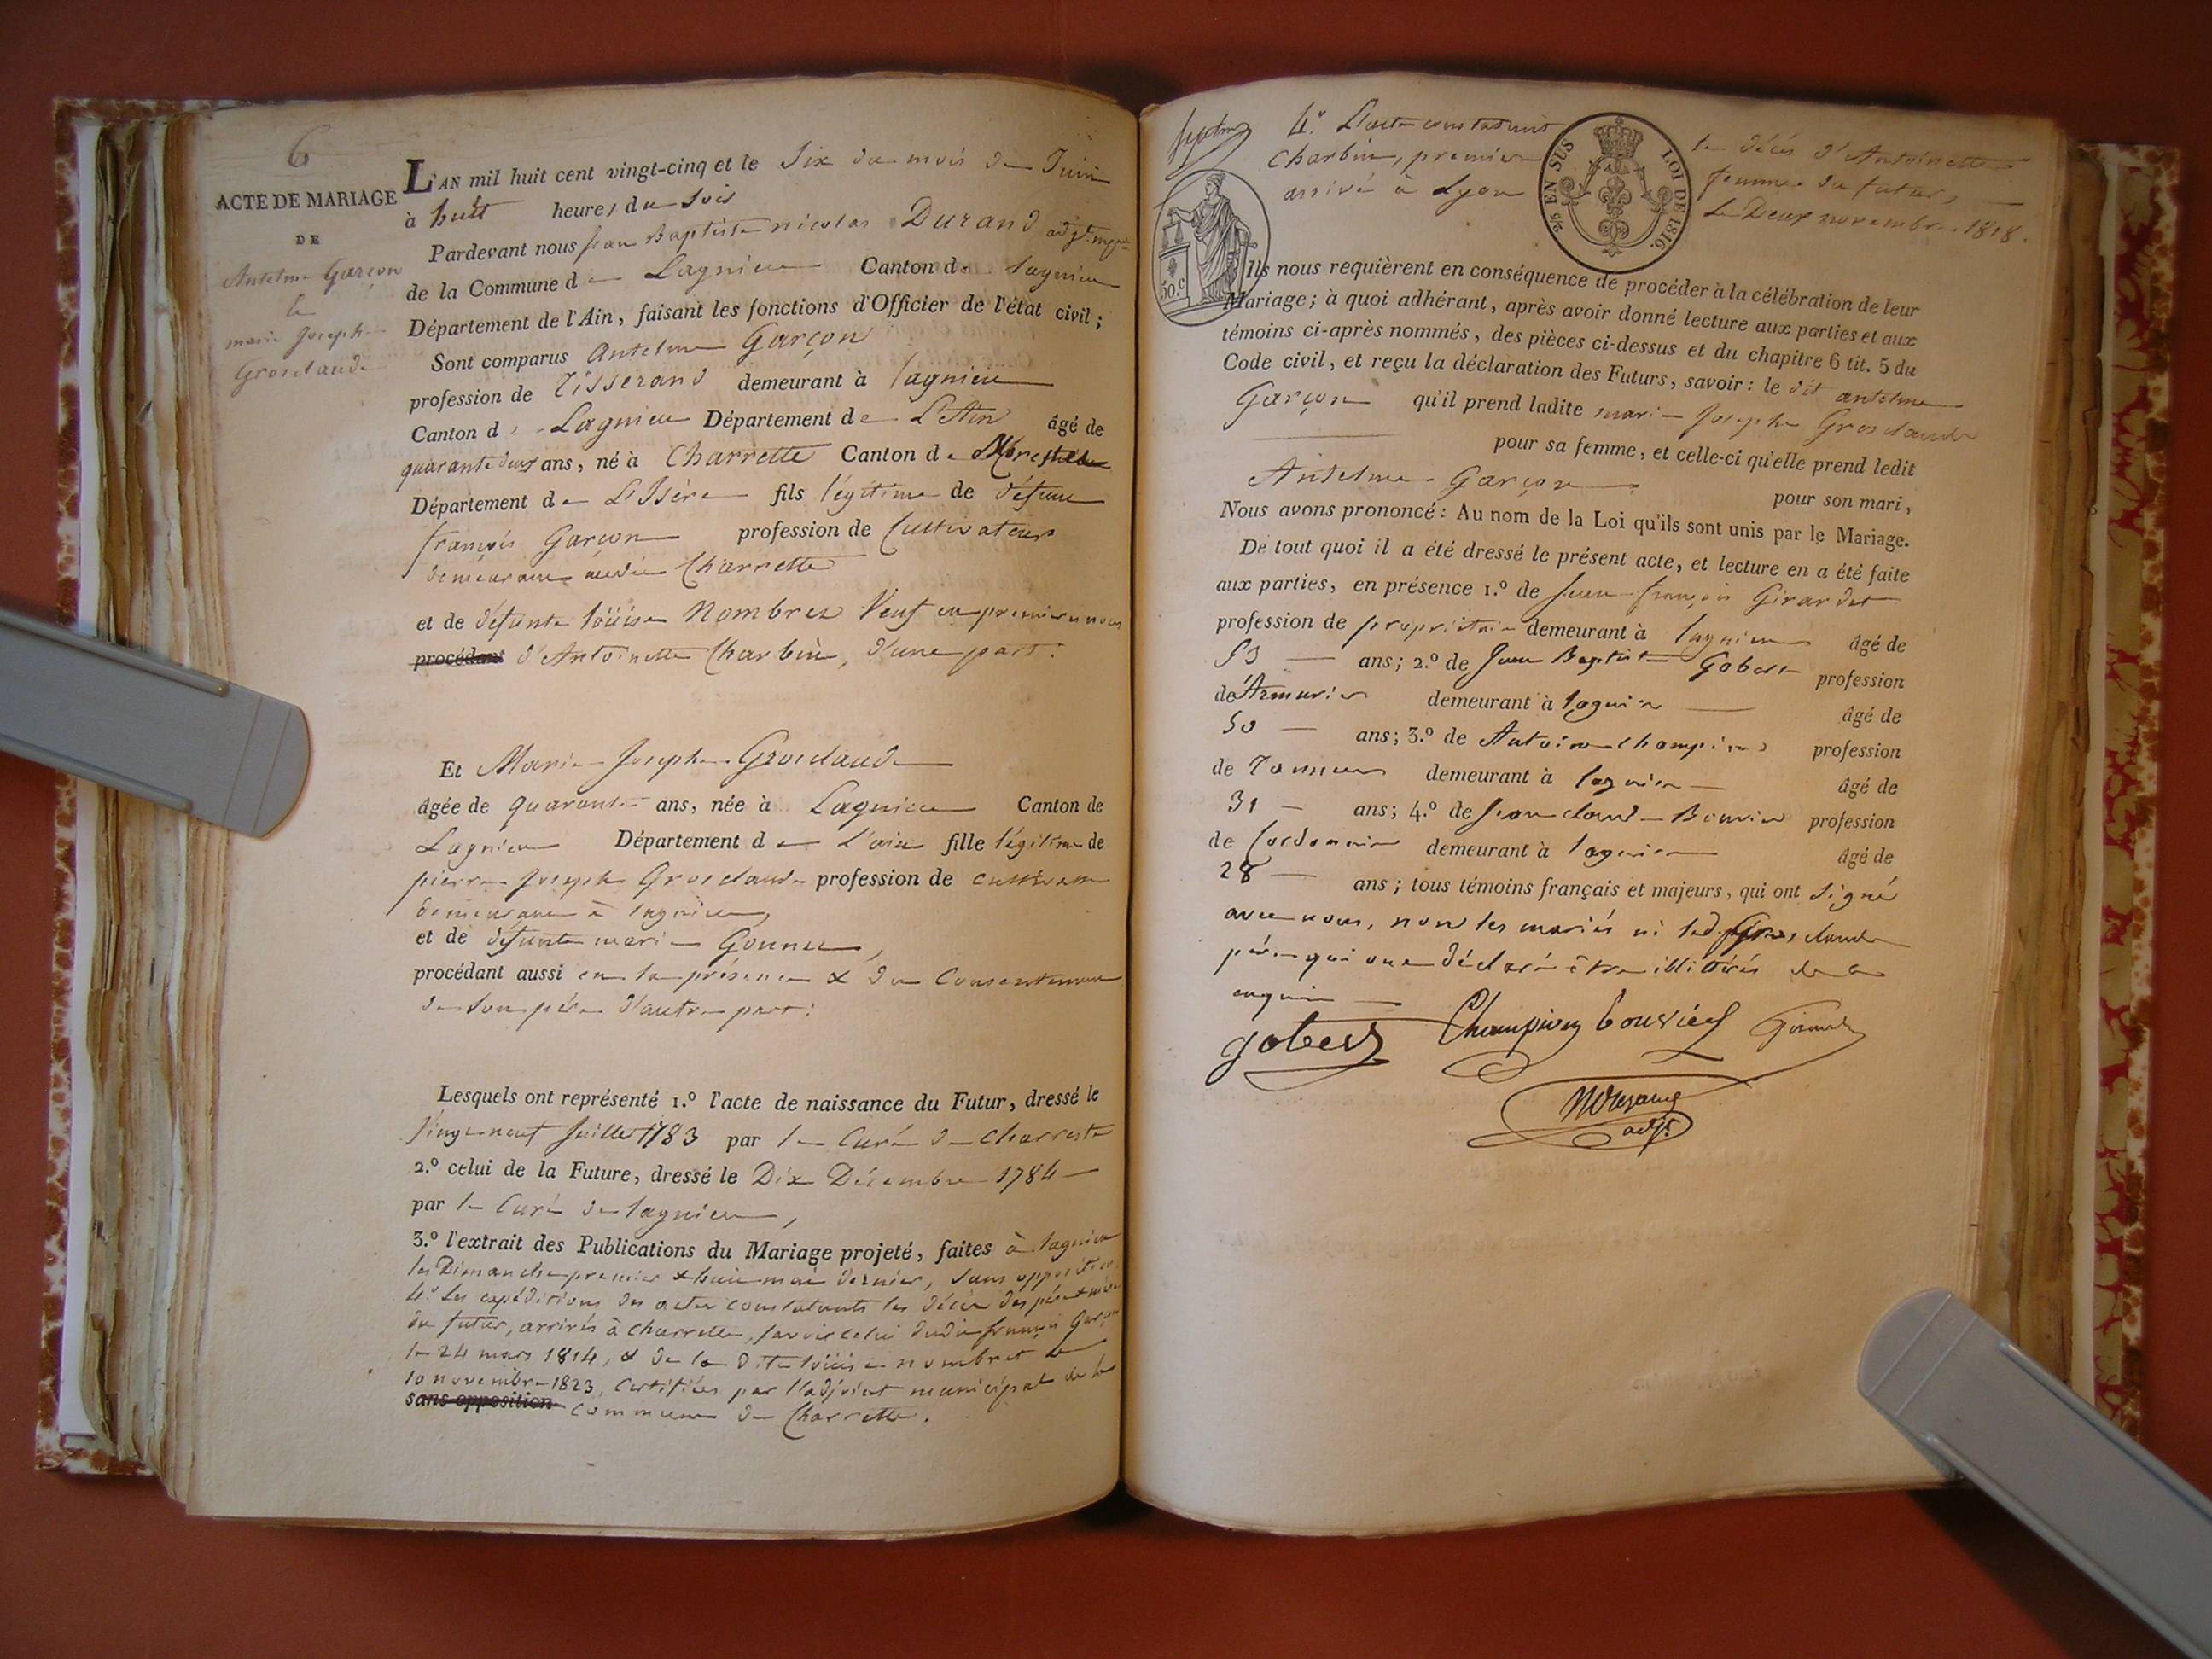 6
ACTE DE MARIAGE
DE
Antelme Garçon
&
marie Josephe
Grosclaude
L'AN mil huit cent vingt-cinq et le Six du mois de Juin
à huit heures du soir
Pardevant nous jean Baptiste nicolas Durand adjt.
de la Commune de Lagnieu Canton de lagnieu
Département de l'Ain, faisant les fonctions d'Officier de l'état civil ;
Sont comparus Antelme Garçon
profession de Tisserand demeurant à lagnieu
Canton de Lagnieu Département de L'Ain âgé de
quarante deux ans, né à Charrette Canton de Morestel
Département de L'Isère fils légitime de défunt
françois Garçon profession de Cultivateur
demeurant audit Charrette
et de défunte loüise Nombret Veuf en premiere noces
procédant d'Antoinette Charbin, d'une part.
Et Marie Josephe Grosclaude
âgée de quarante ans, née à Lagnieu Canton de
Lagnieu Département de l'ain fille légitime de
pierre Joseph Grosclaude profession de cultivateur
demeurant à lagnieu,
et de défunte marie Gonnet,
procédant aussi en la présence & du Consentement
de son père d'autre part.
Lesquels ont représenté 1.º l'acte de naissance du Futur, dressé le
Vingt neuf Juillet 1783 par le Curé de charrette
2.º celui de la Future, dressé le Dix Décembre 1784
par le Curé de lagnieu,
3.º l'extrait des Publications du Mariage projeté, faites à lagnieu
les Dimanches premier & huit mai dernier, sans opposition
4.º Les expéditions des actes constatants les décès des père & mère
du futur, arrivés à charrette, savoir celui dudit françois Garçon
le 24 mars 1814, & de la dite loüise nombret le
10 novembre 1823, certifiées par l'adjoint municipal de la
sans opposition commune de Charrette.
4.º L'acte constatant le décès d'Antoinette
Charbin, premiere femme du futur,
arrivé à Lyon le Deux novembre 1818.
50.c
2/5 EN SUS LOI DE 1816.
Ils nous requièrent en conséquence de procéder à la célébration de leur
Mariage ; à quoi adhérant, après avoir donné lecture aux parties et aux
témoins ci-après nommés, des pièces ci-dessus et du chapitre 6 tit. 5 du
Code civil, et reçu la déclaration des Futurs, savoir : le dit antelme
Garçon qu'il prend ladite marie Josephe Grosclaude
pour sa femme, et celle-ci qu'elle prend ledit
Antelme Garçon pour son mari,
Nous avons prononcé : Au nom de la Loi qu'ils sont unis par le Mariage.
De tout quoi il a été dressé le présent acte, et lecture en a été faite
aux parties, en présence 1.º de jean françois Girardet
profession de propriétaire demeurant à lagnieu âgé de
53 ans ; 2.º de Jean Baptiste Gobert profession
de Armurier demeurant à lagnieu âgé de
50 ans ; 3.º de Antoine Champion profession
de Tanneur demeurant à lagnieu âgé de
31 ans ; 4.º de jean claude Bouvier profession
de Cordonnier demeurant à lagnieu âgé de
28 ans ; tous témoins français et majeurs, qui ont signé
avec nous, non les mariés ni led. Grosclaude
père qui ont déclaré être illitérés de ce
enquis
gobert Champion bouvier Girardet
adjt.